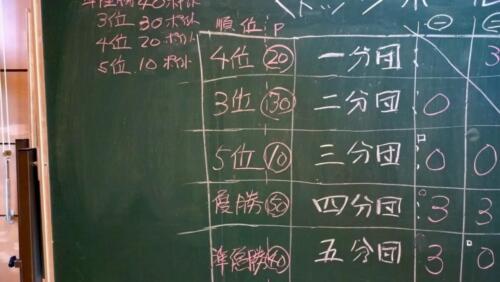 準優勝 40ポイント
3位 30ポイント
4位 20ポイント
5位 10ポイント
順位 P
4位 20 一分団 3
3位 30 二分団 0
5位 10 三分団 0 0
優勝 50 四分団 3 3
準優勝 40 五分団 3 0